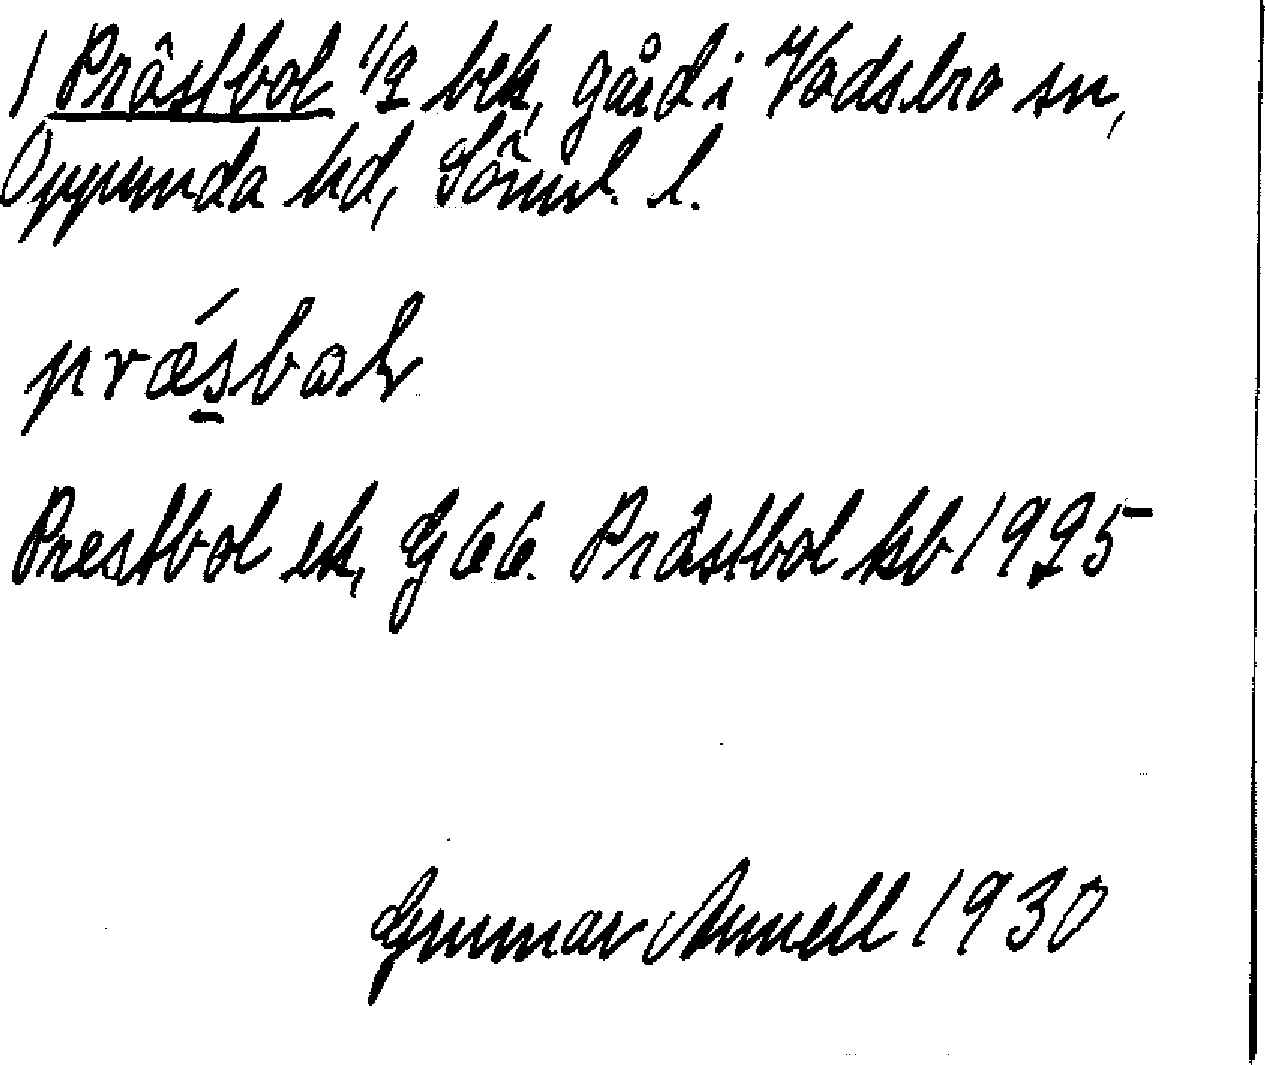 1 Prästbol 1/2 bek, gård i Vadsbro sn,
Oppunda hd, Söml. l.
præ´s̲bωɫ
Prestbol ek, G 66. Prästbol kb 1925
Gunnar Annell 1930